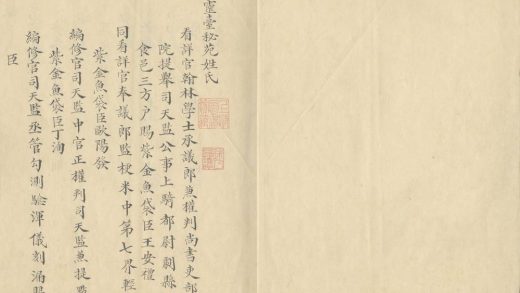 靈臺秘苑姓氏
看詳官翰林學士承議郎兼權判尚書吏部
院提舉司天監公事上騎都尉開縣
食邑三百戶賜紫金魚袋臣王安禮
同看詳官奉議郎監粳米中第七界輕
紫金魚袋臣歐陽發
編修官司天監中官正權判司天監兼提點
紫金魚袋臣丁洵
編修官司天監丞管勾測驗渾儀刻漏賜
臣